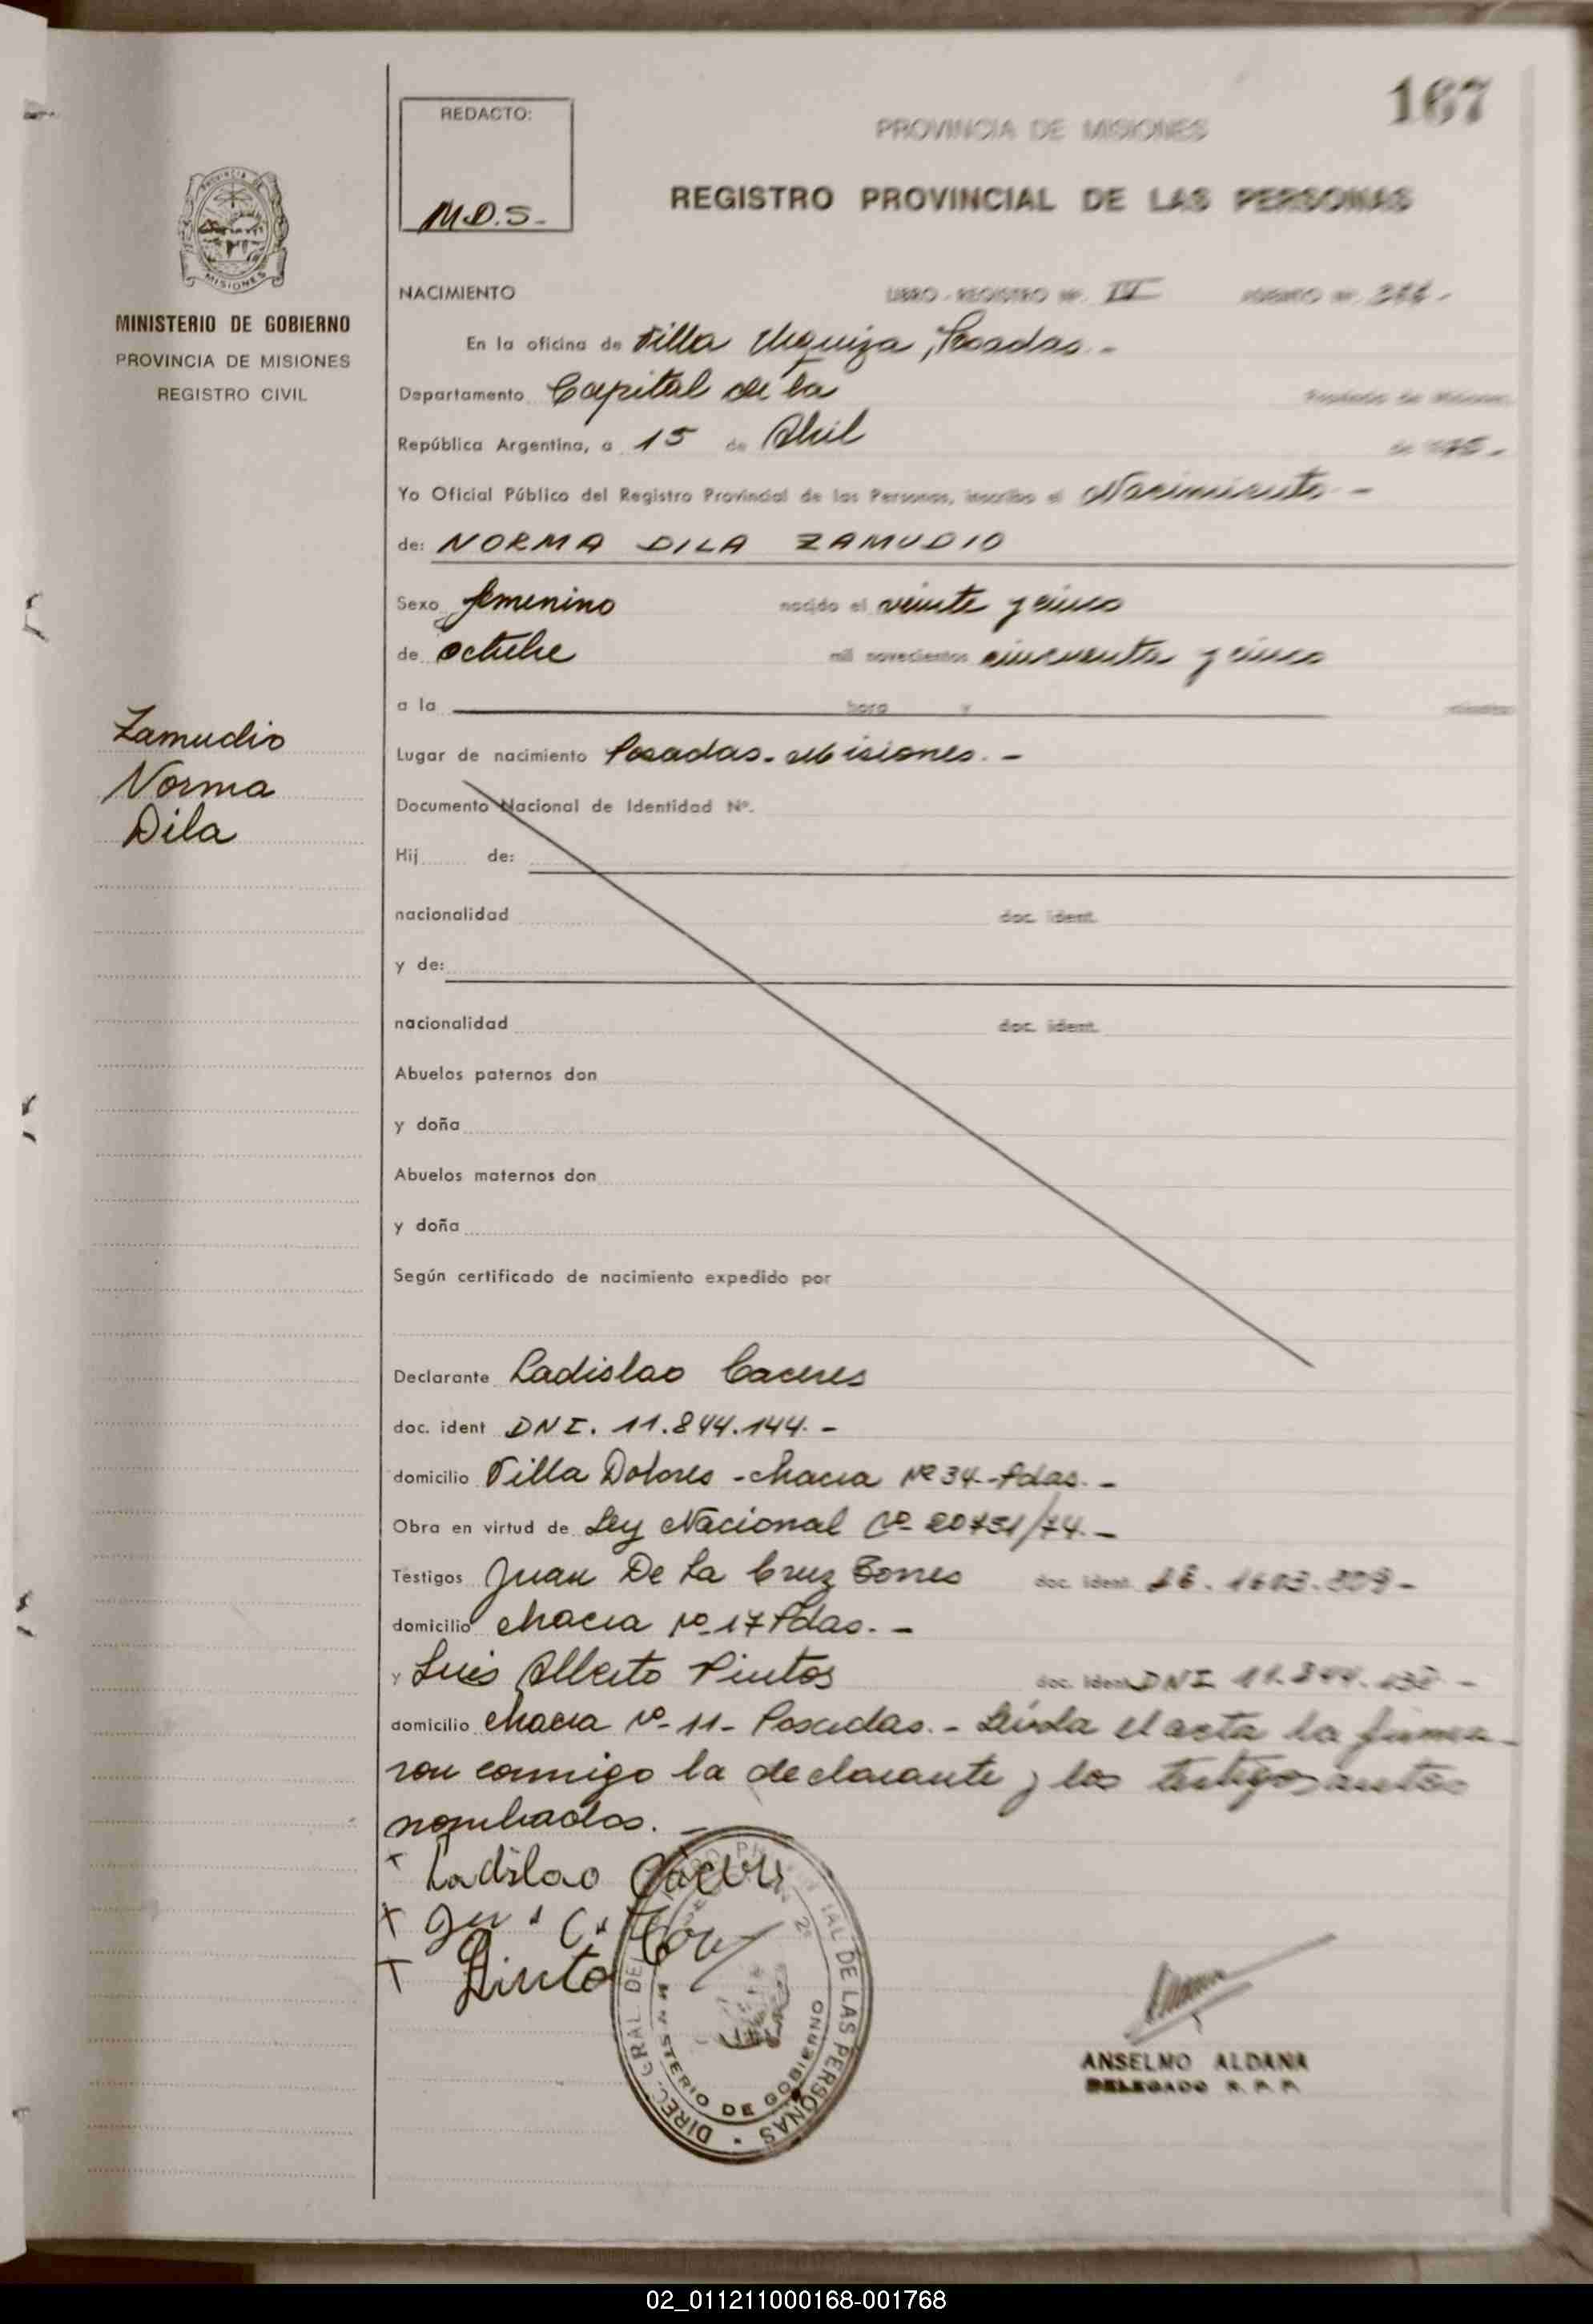 167
REDACTO:
M.D.S.-
PROVINCIA DE MISIONES
REGISTRO PROVINCIAL DE LAS PERSONAS
PROVINCIA DE
MISIONES
MINISTERIO DE GOBIERNO
PROVINCIA DE MISIONES
REGISTRO CIVIL
NACIMIENTO LIBRO - REGISTRO Nº. IV ASIENTO Nº.
En la oficina de Villa Urquiza, Posadas.-
Departamento Capital de la Provincia de Misiones,
República Argentina, a 15 de Abril de 1975-
Yo Oficial Público del Registro Provincial de las Personas, inscribo el Nacimiento-
de: NORMA DILA ZAMUDIO
Sexo femenino nacido el veinte y cinco
de octubre mil novecientos cincuenta y cinco
a la hora y minutos
Zamudio
Norma
Dila
Lugar de nacimiento Posadas. Misiones.-
Documento Nacional de Identidad Nº.
Hij de:
nacionalidad doc. ident.
y de:
nacionalidad doc. ident.
Abuelos paternos don
y doña
Abuelos maternos don
y doña
Según certificado de nacimiento expedido por
Declarante Ladislao Caceres
doc. ident DNI. 11.844.144.-
domicilio Villa Dolores - chacra Nº 34.-Pdas.-
Obra en virtud de Ley Nacional Nº 20751/74.-
Testigos Juan De La Cruz Torres doc. ident.
domicilio chacra Nº 17 Pdas.-
y Luis Alberto Pintos doc. ident DNI
domicilio chacra Nº-11- Posadas.- Leída el acta la firma-
ron conmigo la declarante y los testigos antes
nombrados.-
x Ladislao Caceres
x
x Pinto
DIREC. GRAL. DEL REGISTRO PROVINCIAL DE LAS PERSONAS
MINISTERIO DE GOBIERNO
ANSELMO ALDANA
DELEGADO R. P. P.
02_011211000168-001768